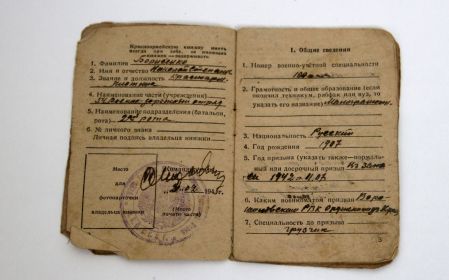 Красноармейскую книжку иметь
всегда при себе. Не имеющих
книжек — задерживать.
1. Фамилия Борисенко
2. Имя и отчество
3. Звание и должность Красноарм.
4. Наименование части (учреждения)
54 Военно дорожный отряд
5. Наименование подразделения (батальон,
рота) 2я рота
6. № личного знака
Личная подпись владельца книжки
Место
для
фотокарточки
владельца книжки
Командир
194 г.
(Место
печати части)
I. Общие сведения
1. Номер военно-учётной специальности
2. Грамотность и общее образование (если
окончил техникум, рабфак или вуз, то
указать его название) Малограмотн.
3. Национальность Русский
4. Год рождения 1907
5. Год призыва (указать также — нормаль-
ный или досрочный призыв)
1942
6. Каким военкоматом призван Воро
шиловским РВК Орджоникидз. края
7. Специальность до призыва
грузчик
3